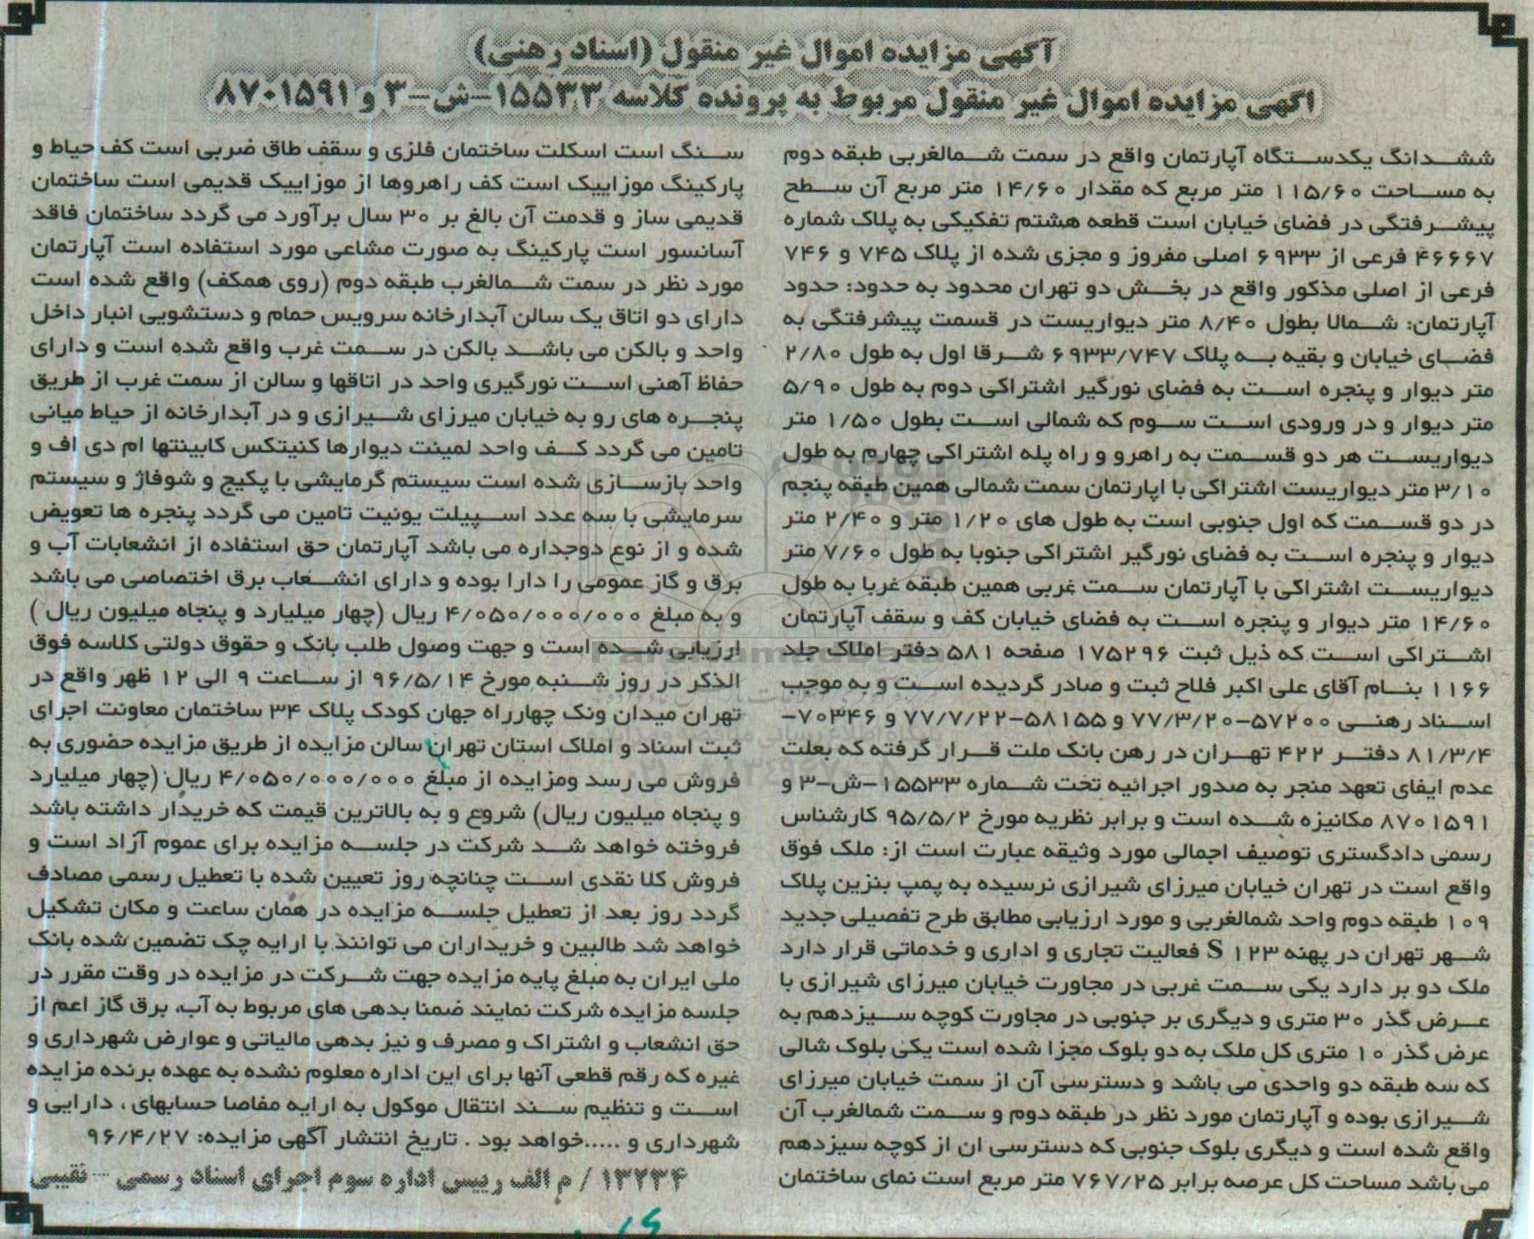 آگهی مزایده اموال غیر منقول (اسناد رهنی)
اگهی مزایده اموال غیر منقول مربوط به پرونده کلاسه ۱۵۵۳۳-ش-۳ و ۸۷۰۱۵۹۱
ششدانگ یکدستگاه آپارتمان واقع در سمت شمالغربی طبقه دوم
به مساحت ۱۱۵/۶۰ متر مربع که مقدار ۱۴/۶۰ متر مربع آن سطح
پیشرفتگی در فضای خیابان است قطعه هشتم تفکیکی به پلاک شماره
۴۶۶۶۷ فرعی از ۶۹۳۳ اصلی مفروز و مجزی شده از پلاک ۷۴۵ و ۷۴۶
فرعی از اصلی مذکور واقع در بخش دو تهران محدود به حدود: حدود
آپارتمان: شمالا بطول ۸/۴۰ متر دیواریست در قسمت پیشرفتگی به
فضای خیابان و بقیه به پلاک ۶۹۳۳/۷۴۷ شرقا اول به طول ۲/۸۰
متر دیوار و پنجره است به فضای نورگیر اشتراکی دوم به طول ۵/۹۰
متر دیوار و در ورودی است سوم که شمالی است بطول ۱/۵۰ متر
دیواریست هر دو قسمت به راهرو و راه پله اشتراکی چهارم به طول
۳/۱۰ متر دیواریست اشتراکی با اپارتمان سمت شمالی همین طبقه پنجم
در دو قسمت که اول جنوبی است به طول های ۱/۲۰ متر و ۲/۴۰ متر
دیوار و پنجره است به فضای نورگیر اشتراکی جنوبا به طول ۷/۶۰ متر
دیواریست اشتراکی با آپارتمان سمت غربی همین طبقه غربا به طول
۱۴/۶۰ متر دیوار و پنجره است به فضای خیابان کف و سقف آپارتمان
اشتراکی است که ذیل ثبت ۱۷۵۲۹۶ صفحه ۵۸۱ دفتر املاک جلد
۱۱۶۶ بنام آقای علی اکبر فلاح ثبت و صادر گردیده است و به موجب
اسناد رهنی ۵۷۲۰۰-۷۷/۳/۲۰ و ۵۸۱۵۵-۷۷/۷/۲۲ و ۷۰۳۴۶-
۸۱/۳/۴ دفتر ۴۲۲ تهران در رهن بانک ملت قرار گرفته که بعلت
عدم ایفای تعهد منجر به صدور اجرائیه تحت شماره ۱۵۵۳۳-ش-۳ و
۸۷۰۱۵۹۱ مکانیزه شده است و برابر نظریه مورخ ۹۵/۵/۲ کارشناس
رسمی دادگستری توصیف اجمالی مورد وثیقه عبارت است از: ملک فوق
واقع است در تهران خیابان میرزای شیرازی نرسیده به پمپ بنزین پلاک
۱۰۹ طبقه دوم واحد شمالغربی و مورد ارزیابی مطابق طرح تفصیلی جدید
شهر تهران در پهنه S ۱۲۳ فعالیت تجاری و اداری و خدماتی قرار دارد
ملک دو بر دارد یکی سمت غربی در مجاورت خیابان میرزای شیرازی با
عرض گذر ۳۰ متری و دیگری بر جنوبی در مجاورت کوچه سیزدهم به
عرض گذر ۱۰ متری کل ملک به دو بلوک مجزا شده است یکی بلوک شالی
که سه طبقه دو واحدی می باشد و دسترسی آن از سمت خیابان میرزای
شیرازی بوده و آپارتمان مورد نظر در طبقه دوم و سمت شمالغرب آن
واقع شده است و دیگری بلوک جنوبی که دسترسی ان از کوچه سیزدهم
می باشد مساحت کل عرصه برابر ۷۶۷/۲۵ متر مربع است نمای ساختمان
سنگ است اسکلت ساختمان فلزی و سقف طاق ضربی است کف حیاط و
پارکینگ موزاییک است کف راهروها از موزاییک قدیمی است ساختمان
قدیمی ساز و قدمت آن بالغ بر ۳۰ سال برآورد می گردد ساختمان فاقد
آسانسور است پارکینگ به صورت مشاعی مورد استفاده است آپارتمان
مورد نظر در سمت شمالغرب طبقه دوم (روی همکف) واقع شده است
دارای دو اتاق یک سالن آبدارخانه سرویس حمام و دستشویی انبار داخل
واحد و بالکن می باشد بالکن در سمت غرب واقع شده است و دارای
حفاظ آهنی است نورگیری واحد در اتاقها و سالن از سمت غرب از طریق
پنجره های رو به خیابان میرزای شیرازی و در آبدارخانه از حیاط میانی
تامین می گردد کف واحد لمینت دیوارها کنیتکس کابینتها ام دی اف و
واحد بازسازی شده است سیستم گرمایشی با پکیج و شوفاژ و سیستم
سرمایشی با سه عدد اسپیلت یونیت تامین می گردد پنجره ها تعویض
شده و از نوع دوجداره می باشد آپارتمان حق استفاده از انشعابات آب و
برق و گاز عمومی را دارا بوده و دارای انشعاب برق اختصاصی می باشد
و به مبلغ ۴/۰۵۰/۰۰۰/۰۰۰ ریال (چهار میلیارد و پنجاه میلیون ریال )
ارزیابی شده است و جهت وصول طلب بانک و حقوق دولتی کلاسه فوق
الذکر در روز شنبه مورخ ۹۶/۵/۱۴ از ساعت ۹ الی ۱۲ ظهر واقع در
تهران میدان ونک چهارراه جهان کودک پلاک ۳۴ ساختمان معاونت اجرای
ثبت اسناد و املاک استان تهران سالن مزایده از طریق مزایده حضوری به
فروش می رسد ومزایده از مبلغ ۴/۰۵۰/۰۰۰/۰۰۰ ریال (چهار میلیارد
و پنجاه میلیون ریال) شروع و به بالاترین قیمت که خریدار داشته باشد
فروخته خواهد شد شرکت در جلسه مزایده برای عموم آزاد است و
فروش کلا نقدی است چنانچه روز تعیین شده با تعطیل رسمی مصادف
گردد روز بعد از تعطیل جلسه مزایده در همان ساعت و مکان تشکیل
خواهد شد طالبین و خریداران می توانند با ارایه چک تضمین شده بانک
ملی ایران به مبلغ پایه مزایده جهت شرکت در مزایده در وقت مقرر در
جلسه مزایده شرکت نمایند ضمنا بدهی های مربوط به آب، برق گاز اعم از
حق انشعاب و اشتراک و مصرف و نیز بدهی مالیاتی و عوارض شهرداری و
غیره که رقم قطعی آنها برای این اداره معلوم نشده به عهده برنده مزایده
است و تنظیم سند انتقال موکول به ارایه مفاصا حسابهای ، دارایی و
شهرداری و .....خواهد بود . تاریخ انتشار آگهی مزایده: ۹۶/۴/۲۷
۱۳۲۳۴ / م الف رییس اداره سوم اجرای اسناد رسمی – نقیبی